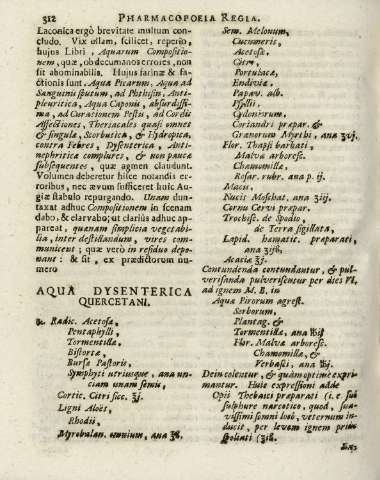 312 PHARMACOPOEIA REGIA.
Laconica ergò brevitate multum con-
cludo. Vix ullam, scilicet, reperio,
hujus Libri, Aquarum Compositio-
nem, quæ, ob decumanos errores, non
sit abominabilis. Hujus farinæ & fa-
ctionis sunt Aqua Picarum, Aqua ad
Sanguinis sputum, ad Phthisin, Anti-
pleuritica, Aqua Caponis, absurdissi-
ma, ad Curationem Pestis, ad Cordis
Affectiones, Theriacales quasi omnes
& singulæ, Scorbutica, & Hydropica,
contra Febres, Dysenterica, Anti-
nephriticæ complures, & non paucæ
subsequentes, quæ agmen claudunt.
Volumen deberetur hisce notandis er-
roribus, nec ævum sufficeret huic Au-
giæ stabulo repurgando. Unam dun-
taxat adhuc Compositionem in scenam
dabo, & clarvabo; ut clariùs adhuc ap-
pareat, quanam simplicia vegetabi-
lia, inter destillandum, vires com-
municent; quæ verò in residuo depo-
nant: & sit, ex prædictorum nu-
mero
AQUA DYSENTERICA
QUERCETANI.
℞. Radic. Acetosæ,
Pentaphylli,
Tormentillæ,
Bistortæ,
Bursæ Pastoris,
Symphyti utriusque, ana un-
ciam unam semis,
Cortic. Citri sicc. ℥j.
Ligni Aloës,
Rhodii,
Myrobalan. omnium, ana ℥ß.
Sem. Melonum,
Cucumeris,
Acetosæ,
Citri,
Portulacæ,
Endiviæ,
Papav. alb.
Psyllii,
Cydoniorum,
Coriandri præpar. &
Granorum Myrthi, ana ʒij.
Flor. Thapsi barbati,
Malvæ arboresc.
Chamomillæ,
Rosar. rubr. ana p. ij.
Macis,
Nucis Moschat. ana ʒiij.
Cornu Cervi præpar.
Trochisc. de Spodio,
de Terra sigillata,
Lapid. hæmatic. præparati,
ana ʒißs.
Acaciæ ℥j.
Contundenda contundantur, & pul-
verisanda pulverisentur per dies VI,
ad ignem M. B. in
Aqua Pirorum agrest.
Sorborum,
Plantag. &
Tormentillæ, ana ℔iß
Flor. Malvæ arboresc.
Chamomillæ, &
Verbasci, ana ℔j.
Dein colentur, & quàm optimè expri-
mantur. Huic expressioni adde
Opii Thebaici præparati (i. e sui
sulphure narcotico, quod, sua-
vissimi somni loco, veternum in-
ducit, per levem ignem priùs
spoliati) ʒiß.